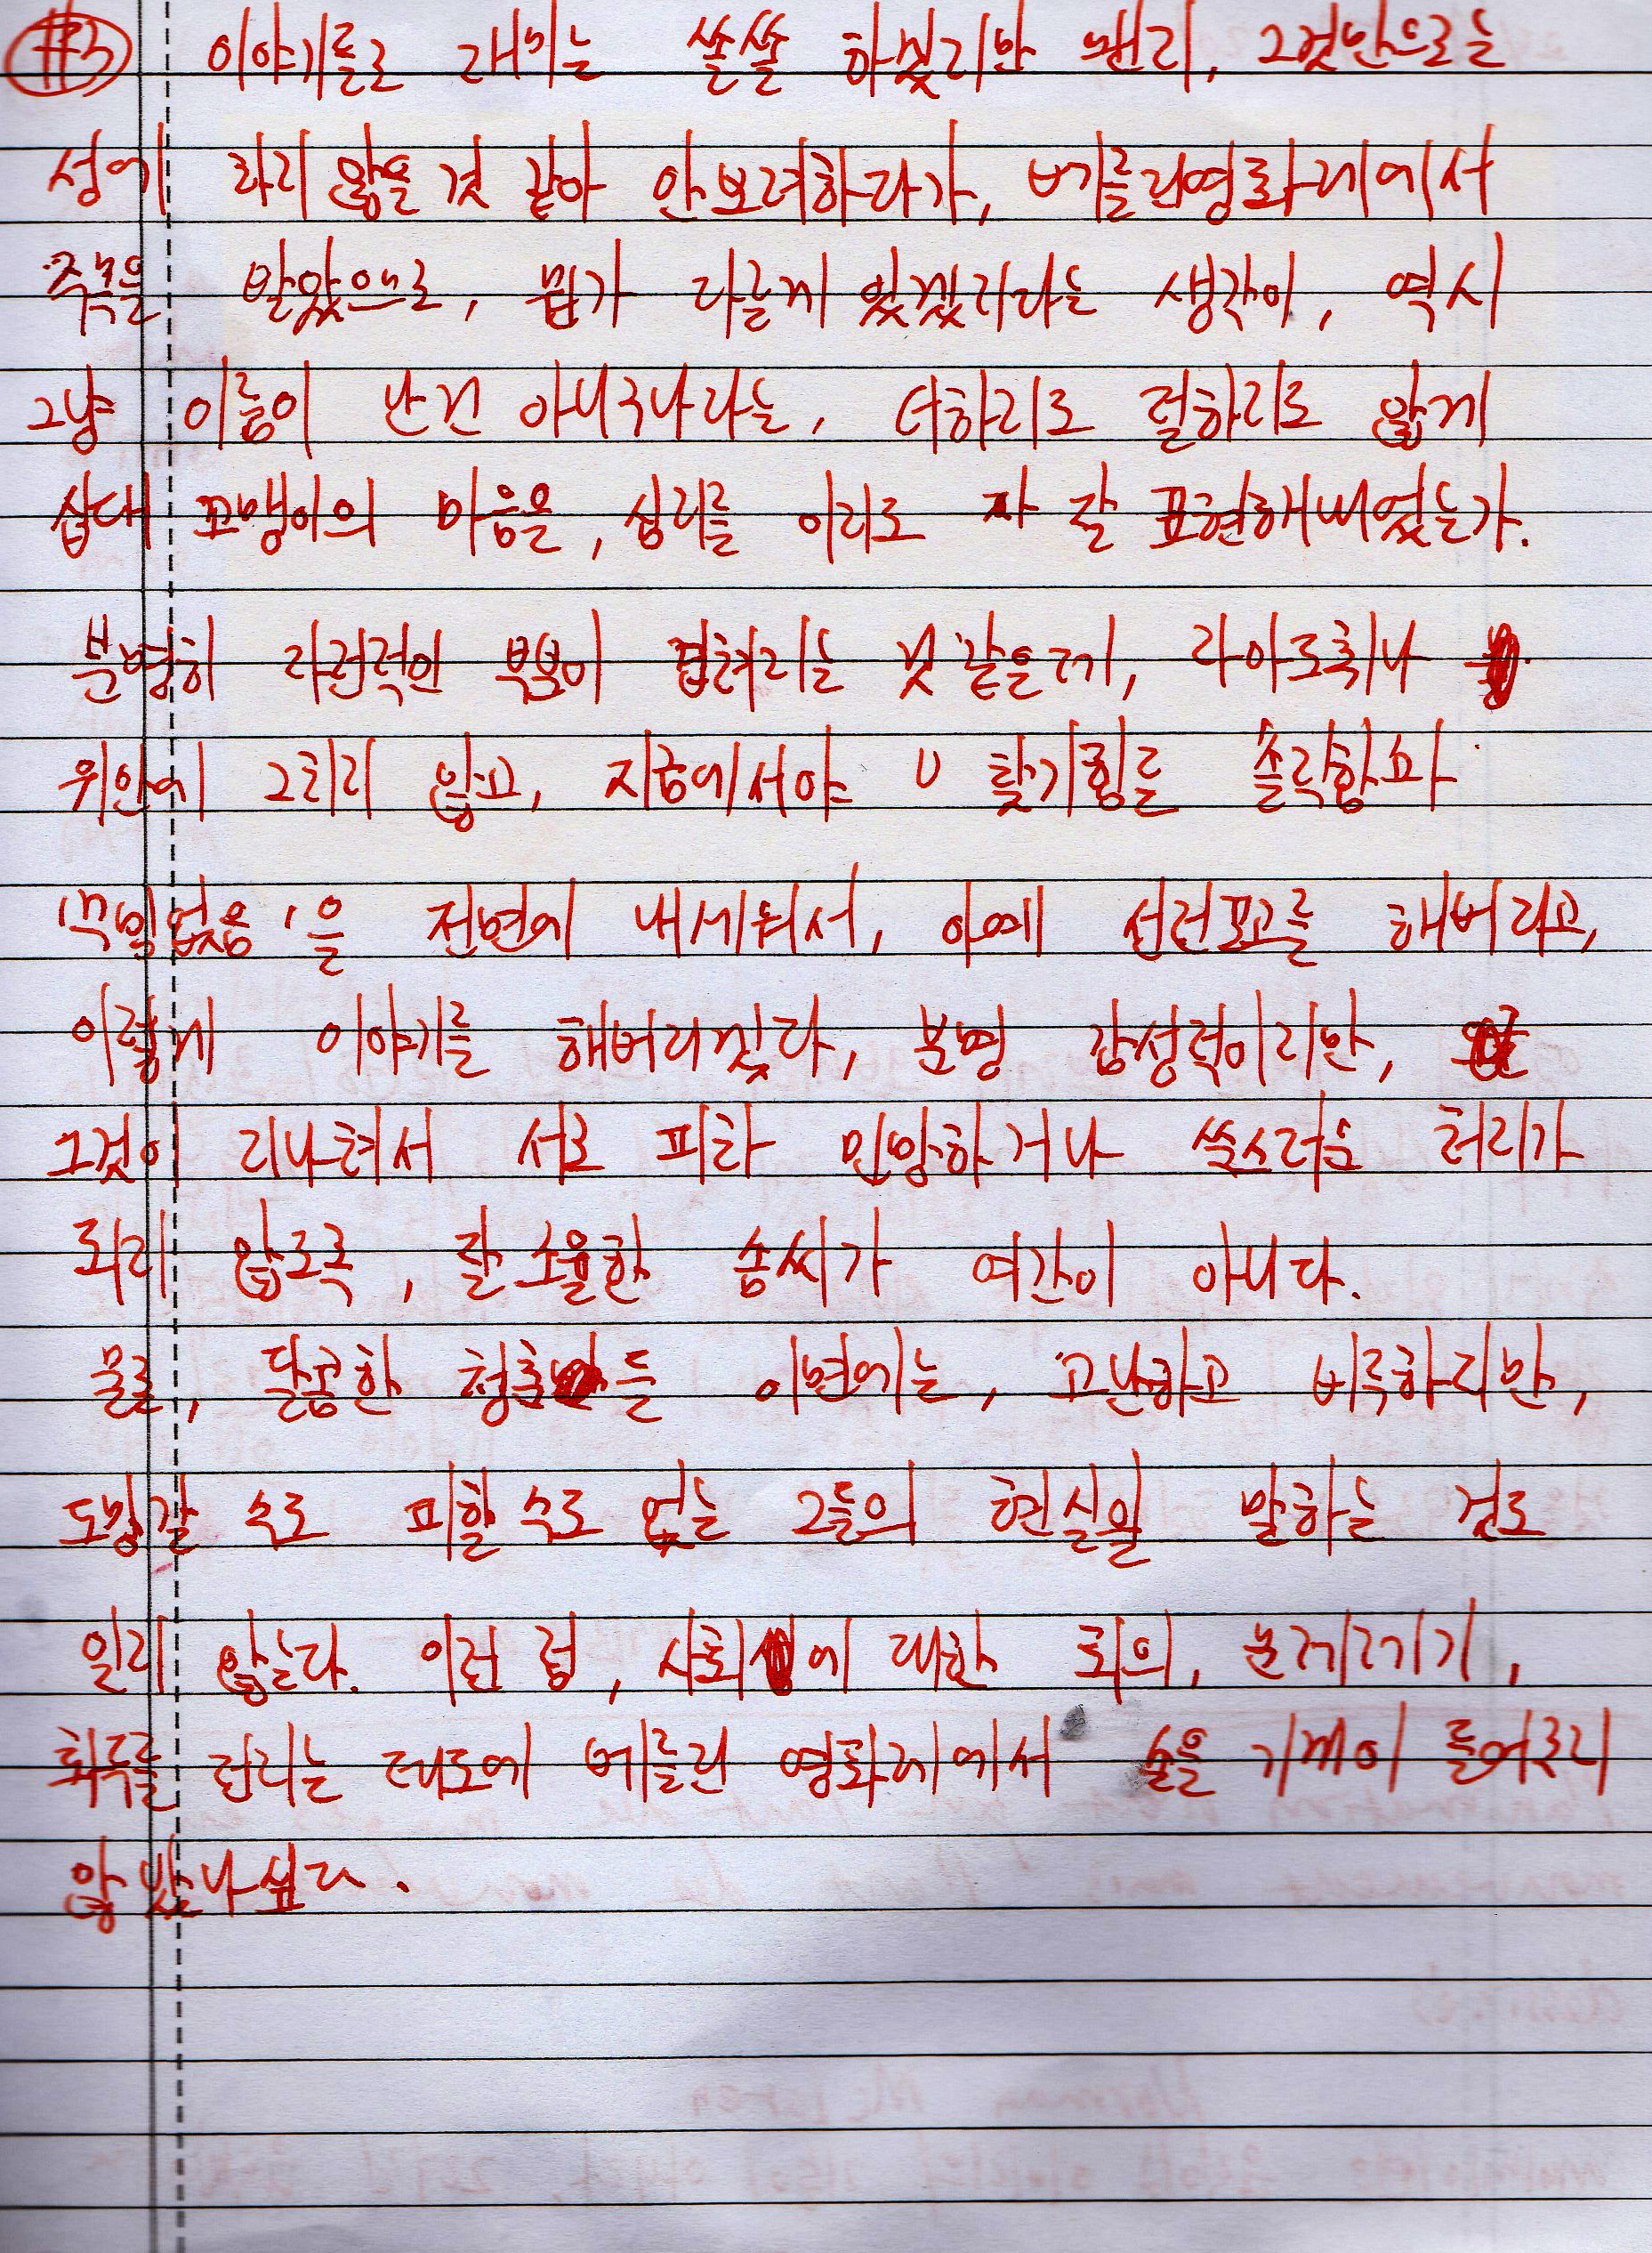 #3 이야기들로 재미는 쏠쏠 하겠지만 왠지, 그것만으로는
성에 차지 않을 것 같아 안보려하다가, 베를린영화제에서
주목을 받았으므로, 뭔가 다를게 있겠지라는 생각이, 역시
그냥 이름이 난건 아니구나라는, 더하지도 덜하지도 않게
십대 꼬맹이의 마음을, 심리를 이리도 잘 표현해내었는가.
분명히 작위적인 부분이 겹쳐지는 것 같을때,
위안에 그치지 않고, 지금에서야
'비밀없음'을 전면에 내세워서, 아예 선전포고를 해버리고,
이렇게 이야기를 해버리겠다, 분명 감성적이지만,
그것이 지나쳐서 서로 피차 민망하거나 쑥스러운 처지가
되지 않도록, 잘 조율한 솜씨가 여간이 아니다.
물론, 달콤한 청춘들 이면에는, 고난하고 비루하지만,
도망갈 수도 피할 수도 없는 그들의 현실을 말하는 것도
잊지 않는다. 이런 점, 사회에 대한 회의, 문제제기,
화두를 던지는 태도에 베를린 영화제에서 손을 기꺼이 들어주지
않 았나싶다.